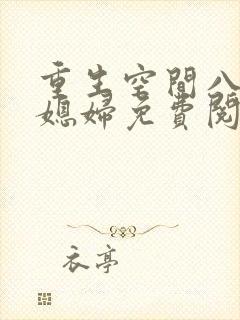 重生空間八
媳婦免費閱
衣亭